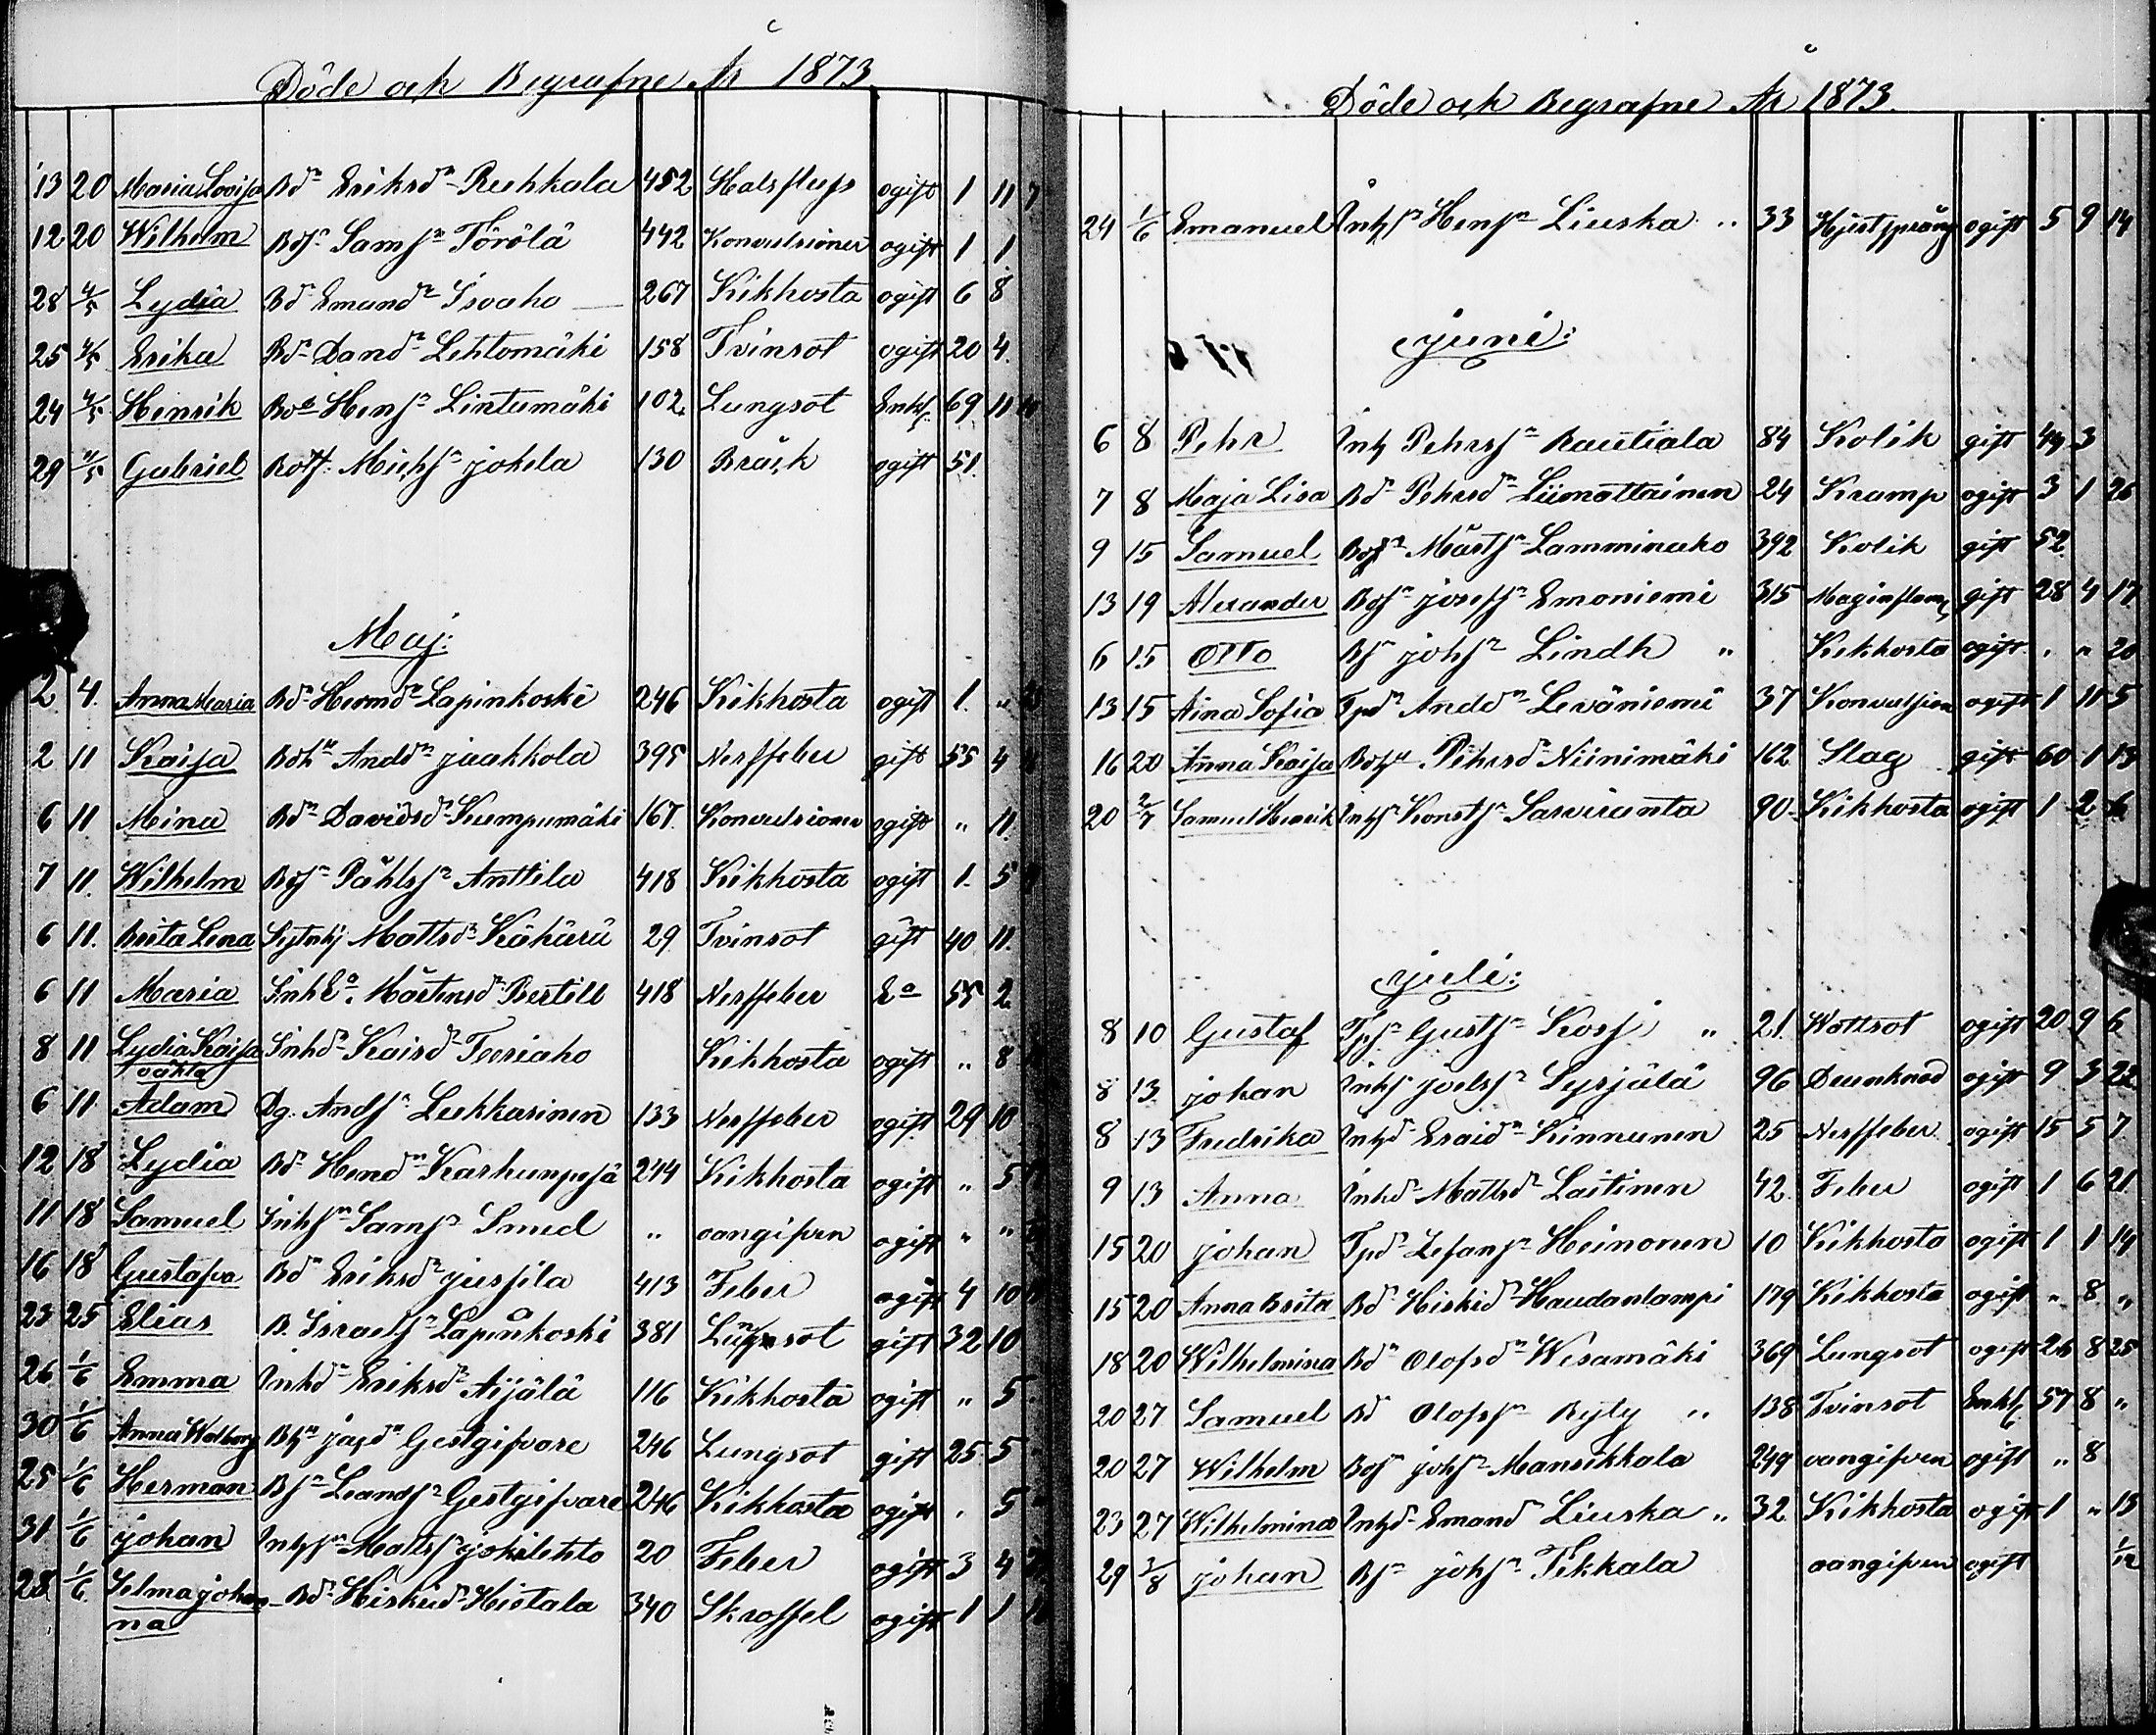 Döde och Begrafne År 1873
13 20 Maria Lovisa Bdr Eriksdr Ruhkala 452 Halsfluss ogift 1 11 7
12 20 Wilhelm Bdsn Samsn Törölä 442 Konvulsioner ogift 1 1
28 4/5 Lydia Bdr Emandr Isoaho 267 Kikhosta ogift 6 8
25 4/5 Erika Bdr Dandr Lehtomäki 158 Tvinsot ogift 20 4
24 4/5 Henrik Hensn Lintumäki 102 Lungsot Enkl 69 11
29 4/5 Gabriel Michsn Jokela 130 Bråck ogift 51
Maj:
2 4 Anna Maria Bdr Hermdr Lapinkoski 246 Kikhosta ogift 1 "
2 11 Kaisa Anddr Jaakkola 395 Nerffeber gift 55 4
6 11 Mina Bdr Davidsdr Kumpumäki 167 Konvulsioner ogift " 11
7 11 Wilhelm Bdsn Påhlsn Anttila 418 Kikhosta ogift 1 5
6 11 Brita Lena Mattsdr Kähärä 29 Tvinsot gift 40 11
6 11 Maria Mårtensdr Bertill 418 Nerffeber Ea 55 2
8 11 Lydia Kaisa oäkta Inhdr Kaisdr Teeriaho Kikhosta ogift " 8
6 11 Adam Dg. Andsn Lukkarinen 133 Nerffeber ogift 29 10
12 18 Lydia Bdr Hendr Karhunpesä 244 Kikhosta ogift " 5
11 18 Samuel Inhsn Samsn Smed " oangifven ogift " "
16 18 Gustafva Bdr Eriksdr Jussila 413 Feber ogift 4 10
23 25 Elias B. Israelsn Lapinkoski 381 Lungsot gift 32 10
26 1/6 Emma Inhdr Eriksdr Äijälä 116 Kikhosta ogift " 5
30 1/6 Anna Walborg Gestgifvare 246 Lungsot gift 25 5
25 1/6 Herman Bsn Leandsn Gestgifvare 246 Kikhosta ogift " 5
31 1/6 Johan Inhsn Mattssn Jokilehto 20 Feber ogift 3 4
28 1/6 Selma Johanna Bdr Hiskiidr Hietala 340 Skroffel ogift 1 1
Döde och Begrafne År 1873.
24 1/6 Emanuel Inhsn Hensn Liuska " 33 Hjertsprång ogift 5 9 14
Juni:
6 8 Pehr Inh Pehrssn Rautiala 84 Kolik gift 49 3
7 8 Maja Lisa Bdr Pehrsdr Liimattainen 24 Kramp ogift 3 1 26
9 15 Samuel Mårtsn Lamminaho 392 Kolik gift 52
13 19 Alexander Bdsn Josefsn Emoniemi 315 Maginflam gift 28 4 17
6 15 Otto Bsn Johsn Lindh " Kikhosta ogift " " 20
13 15 Aina Sofia Tpdr Anddr Leväniemi 37 Konvulsion ogift 1 11 5
16 20 Anna Kaisa Pehrsdr Niinimäki 162 Slag gift 60 1 13
20 2/7 Samuel Henrik Inhsn Konstsn Sarviranta 90 Kikhosta ogift 1 2 6
Juli:
8 10 Gustaf Tpsn Gustsn Kors " 21 Wattsot ogift 20 9 6
8 13 Johan Inhsn Joelssn Syrjälä 96 Drunknad ogift 9 3 22
8 13 Fredrika Inhdr Esaidr Kinnunen 25 Nerffeber ogift 15 5 7
9 13 Anna Inhdr Mattsdr Laitinen 42 Feber ogift 1 6 21
15 20 Johan Stefansn Heinonen 10 Kikhosta ogift 1 1 14
15 20 Anna Brita Bdr Hiskidr Haudanlampi 179 Kikhosta ogift " 8 "
18 20 Wilhelmina Bdr Olofsdr Wesamäki 369 Lungsot ogift 26 8 25
20 27 Samuel Olofssn Ryly " 138 Tvinsot Enkl 57 8 "
20 27 Wilhelm Bdsn Johsn Mansikkala 249 oangifven ogift " 8
23 27 Wilhelmina Inhdr Emandr Liuska " 32 Kikhosta ogift 1 " 13
29 3/8 Johan Bsn Johsn Tikkala oangifven ogift 1/12